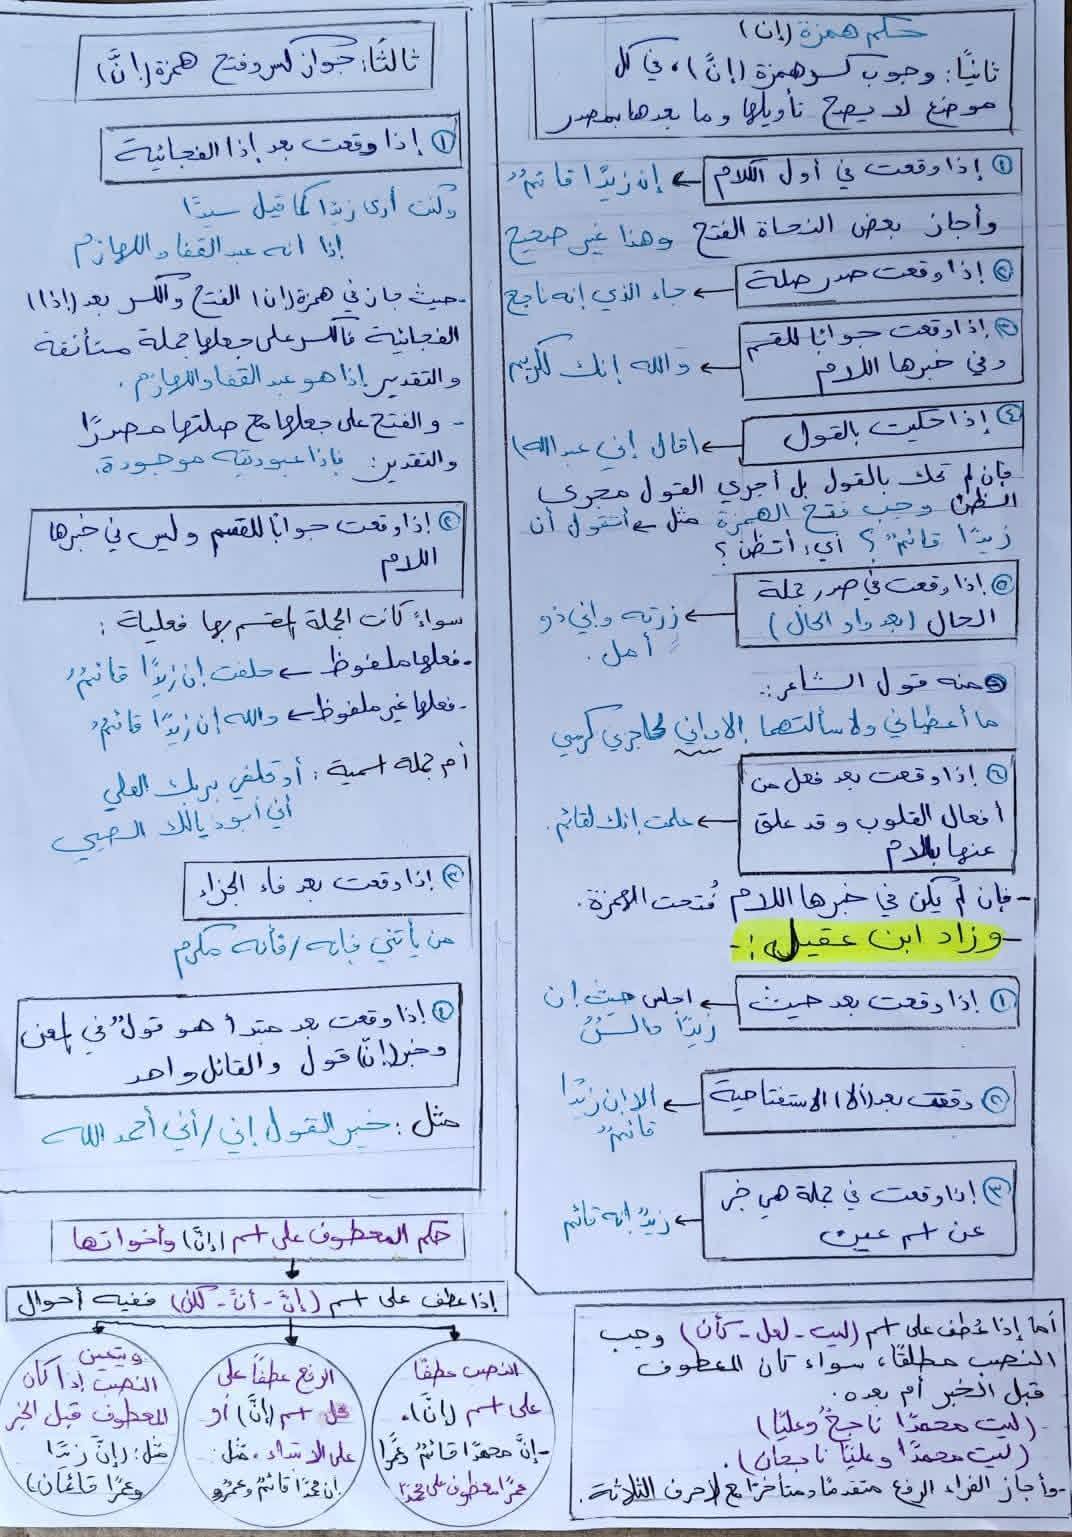 حكم همزة (إن)
ثانيًا: وجوب كسر همزة (إنَّ)، في كل
موضع لا يصح تأويلها وما بعدها بمصدر
① إذا وقعت في أول الكلام ← إن زيدًا قائمٌ
وأجاز بعض النحاة الفتح وهذا غير صحيح
② إذا وقعت صدر صلة ← جاء الذي إنه ناجح
③ إذا وقعت جوابًا للقسم
وفي خبرها اللام ← والله إنك لكريم
④ إذا حكيت بالقول ← (قال إني عبد الله)
فإن لم تحك بالقول بل أجري القول مجرى
الظن وجب فتح الهمزة مثل ← أتقول أن
زيدًا قائمٌ؟ أي: أتظن؟
⑤ إذا وقعت في صدر جملة
الحال (بعد واو الحال) ← زرته وإني ذو
أمل.
منه قول الشاعر:
ما أعطياني ولا سألتهما إلا وإني لحاجزي كرمي
⑥ إذا وقعت بعد فعل من
أفعال القلوب وقد علق
عنها باللام ← علمت إنك لقائم.
- فإن لم يكن في خبرها اللام فُتحت الهمزة.
- وزاد ابن عقيل:-
① إذا وقعت بعد حيث ← اجلس حيث إن
زيدًا جالسٌ
② وقعت بعد (ألا) الاستفتاحية ← ألا إن زيدًا
قائمٌ
③ إذا وقعت في جملة هي خبر
عن اسم عين ← زيدٌ إنه قائم
أما إذا عُطف على اسم (ليت - لعل - كأن) وجب
النصب مطلقًا، سواء كان المعطوف
قبل الخبر أم بعده.
(ليت محمدًا ناجحٌ وعليًا)
(ليت محمدًا وعليًا ناجحان).
- وأجاز الفراء الرفع متقدمًا ومتأخرًا مع الأحرف الثلاثة.
ثالثًا: جواز كسر وفتح همزة (إنَّ)
① إذا وقعت بعد إذا الفجائية
وكنت أرى زيدًا كما قيل سيدًا
إذا أنه عبد القفا واللهازم
- حيث جاز في همزة (إن) الفتح والكسر بعد (إذا)
الفجائية فالكسر على جعلها جملة مستأنفة
والتقدير إذا هو عبد القفا واللهازم.
- والفتح على جعلها مع صلتها مصدرًا
والتقدير: فإذا عبوديته موجودة.
② إذا وقعت جوابًا للقسم وليس في خبرها
اللام
سواءً كانت الجملة المقسم بها فعلية:
- فعلها ملفوظ ← حلفت إن زيدًا قائمٌ
- فعلها غير ملفوظ ← والله إن زيدًا قائمٌ
أم جملة اسمية: أو تحلفي بربك العلي
أني أبو ذيالك الصبي
③ إذا وقعت بعد فاء الجزاء
من يأتني فإنه/فأنه مكرم
④ إذا وقعت بعد مبتدأ هو قولٌ في المعنى
وخبر (إنَّ) قول والقائل واحد
مثل: خير القول إني/أني أحمد الله
حكم المعطوف على اسم (إنَّ) وأخواتها
إذا عطف على اسم (إنَّ - أنَّ - لكن) ففيه أحوال
النصب عطفًا
على اسم (إنَّ)،
- إنَّ محمدًا قائمٌ وعمرًا
عمرًا معطوف على محمدًا
الرفع عطفًا على
محل اسم (إنَّ) أو
على الابتداء، مثل:
إن محمدًا قائمٌ وعمرٌو
ويتعين
النصب إذا كان
المعطوف قبل الخبر
مثل: (إنَّ زيدًا
وعمرًا قائمان)